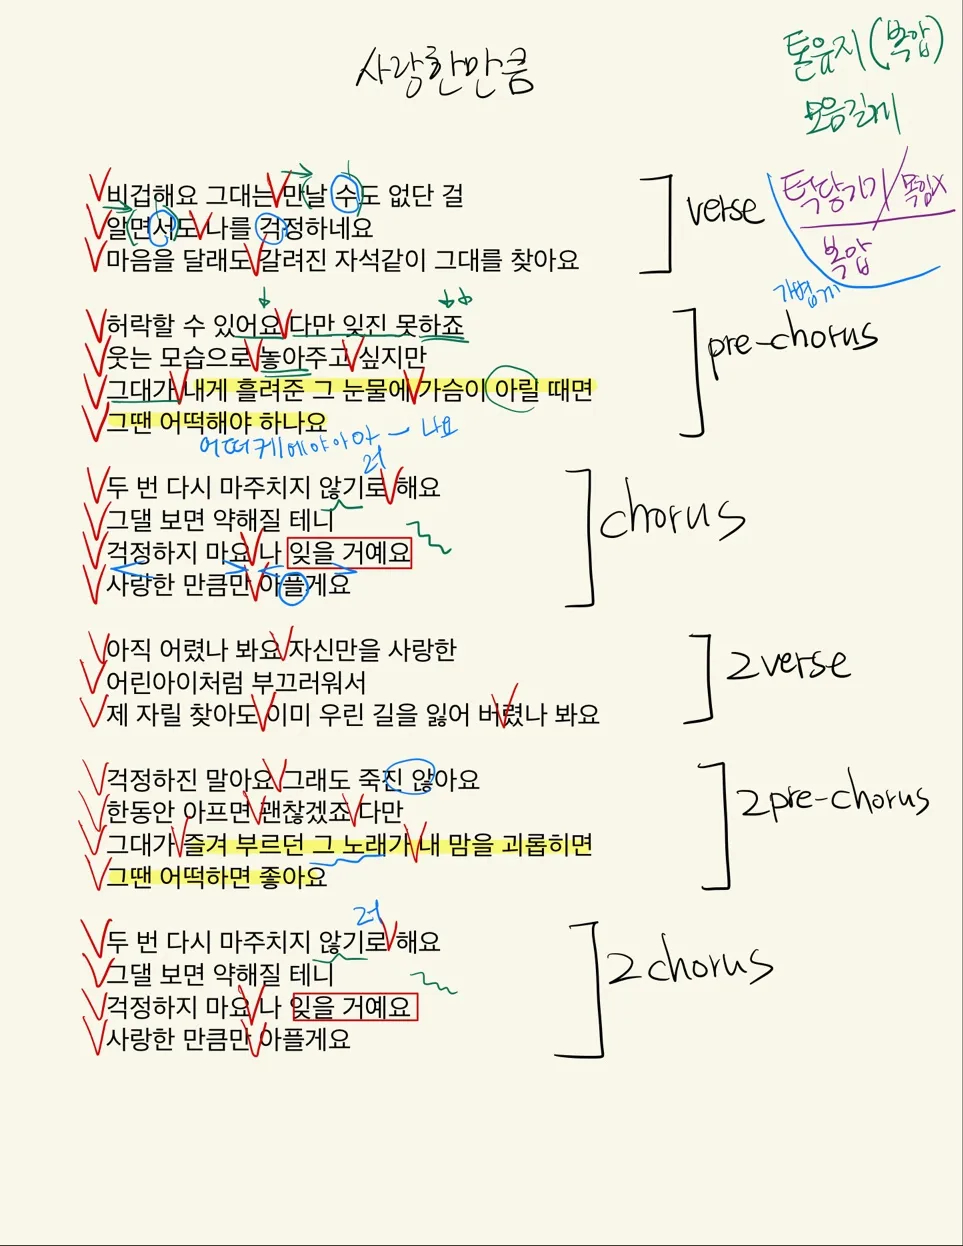 사랑한만큼
톤유지(복압)
모음길게
비겁해요 그대는 만날 수도 없단 걸
알면서도 나를 걱정하네요
마음을 달래도 갈려진 자석같이 그대를 찾아요
verse
턱당기기/목힘X
복압
가볍게
허락할 수 있어요 다만 잊진 못하죠
웃는 모습으로 놓아주고 싶지만
그대가 내게 흘려준 그 눈물에 가슴이 아릴 때면
그땐 어떡해야 하나요
어떠케에야아아 ㅡ 나요
pre-chorus
러
두 번 다시 마주치지 않기로 해요
그댈 보면 약해질 테니
걱정하지 마요 나 잊을 거예요
사랑한 만큼만 아플게요
chorus
아직 어렸나 봐요 자신만을 사랑한
어린아이처럼 부끄러워서
제 자릴 찾아도 이미 우린 길을 잃어 버렸나 봐요
2verse
걱정하진 말아요 그래도 죽진 않아요
한동안 아프면 괜찮겠죠 다만
그대가 즐겨 부르던 그 노래가 내 맘을 괴롭히면
그땐 어떡하면 좋아요
2pre-chorus
러
두 번 다시 마주치지 않기로 해요
그댈 보면 약해질 테니
걱정하지 마요 나 잊을 거예요
사랑한 만큼만 아플게요
2chorus